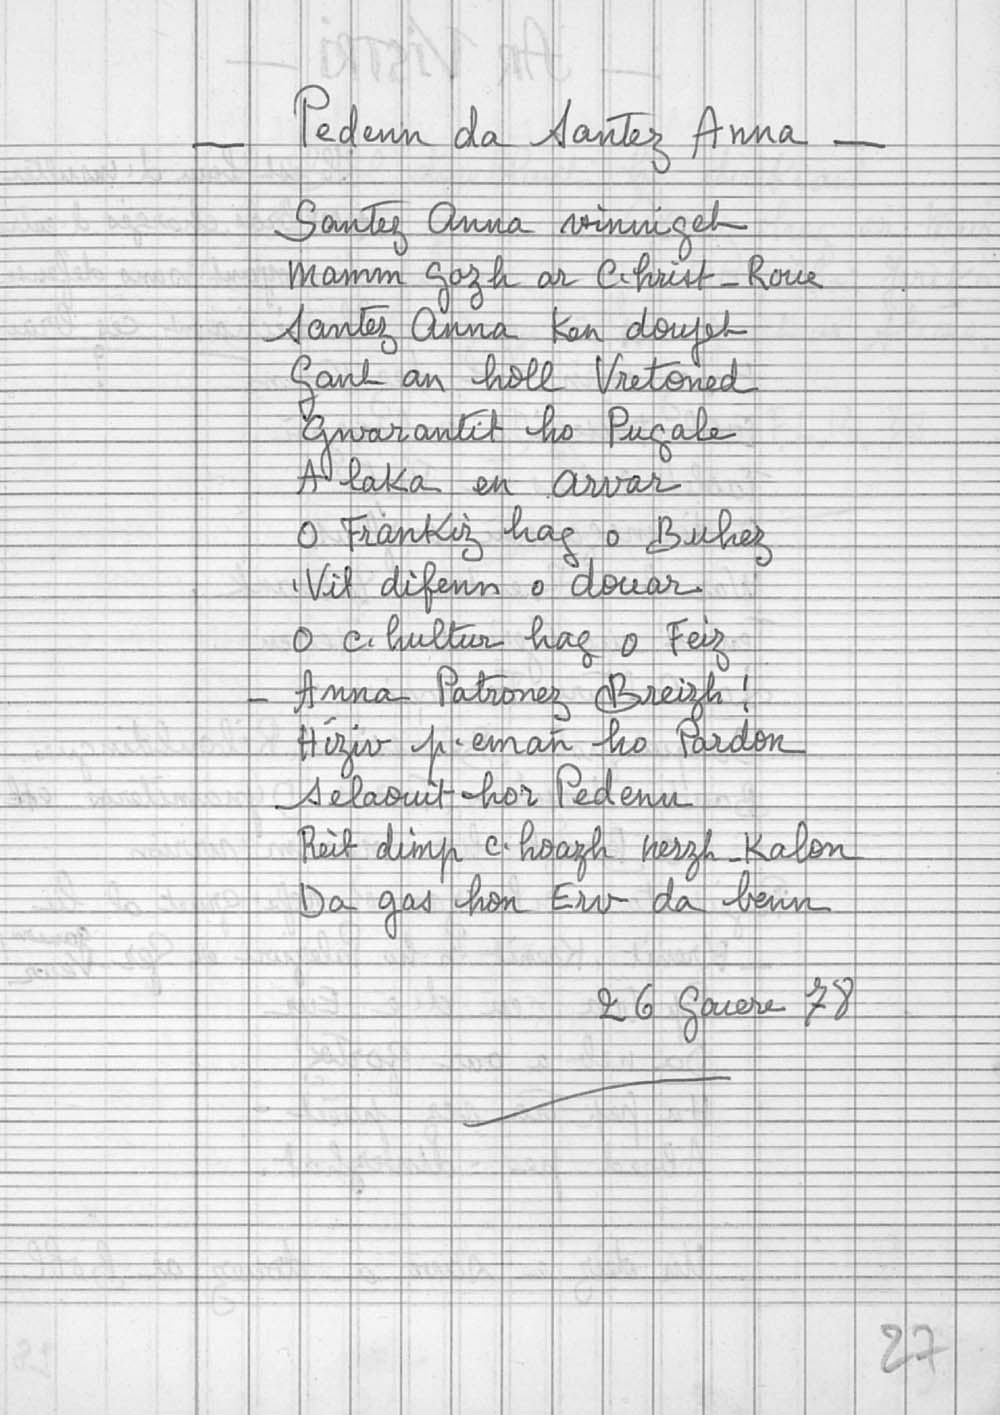 — Pedenn da Santez Anna —
Santez Anna vinniget
Mamm gozh ar C.hrist-Roue
Santez Anna Ken doujet
Gant an holl Vretoned
Gwarantit ho Pugale
A laka en arvar
O Frankiz hag o Buhez
'Vit difenn o douar
O c.hultur hag o Feiz
- Anna Patronez Breizh!
Hiziv p.emañ ho Pardon
Selaouit hor Pedenn
Reit dimp c.hoazh nerzh-Kalon
Da gas hon Erv da benn
26 Gouere 78
27